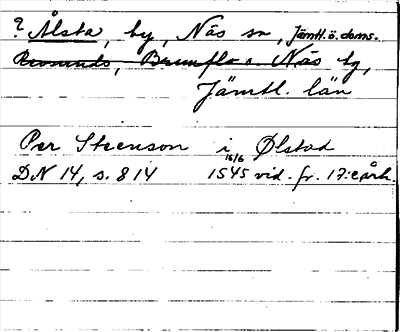 ? Ålsta, by, Näs sn, Jämtl. ö. doms.
Revsunds, Brunflo o. Näs tg,
Jämtl. län
Per Steenson i Ølstad
DN 14, s. 814 1545 16/6 vid. fr. 17:e årh.